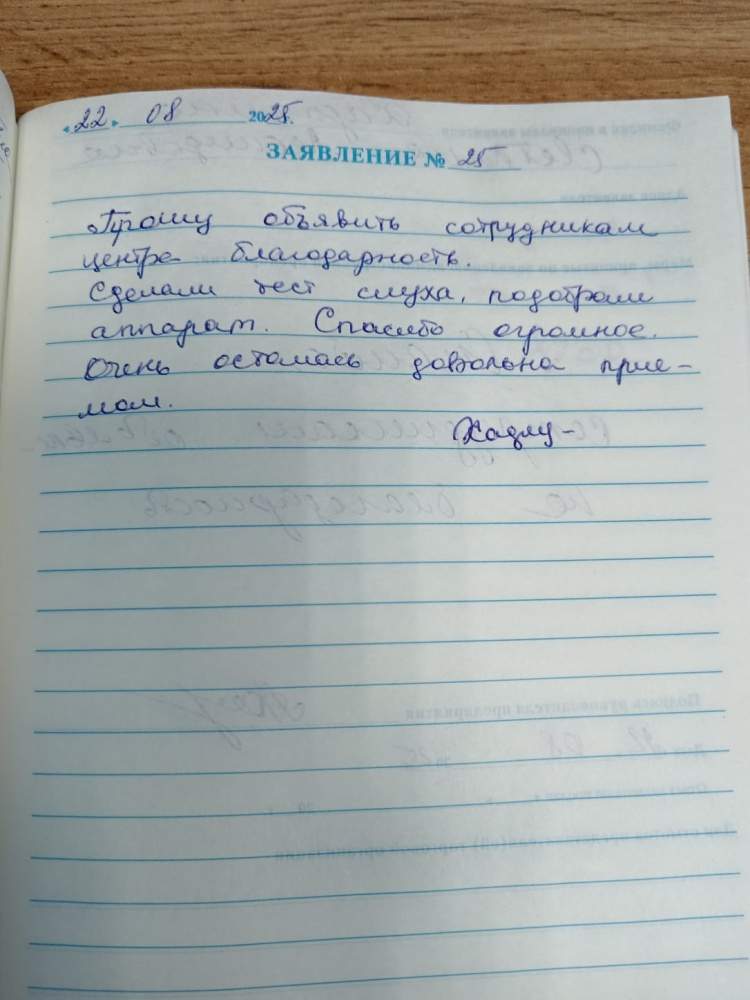 «22» 08 2025г.
ЗАЯВЛЕНИЕ № 25
Прошу объявить сотрудникам
центра благодарность.
Сделали тест слуха, подобрали
аппарат. Спасибо огромное.
Очень осталась довольна прие-
мом.